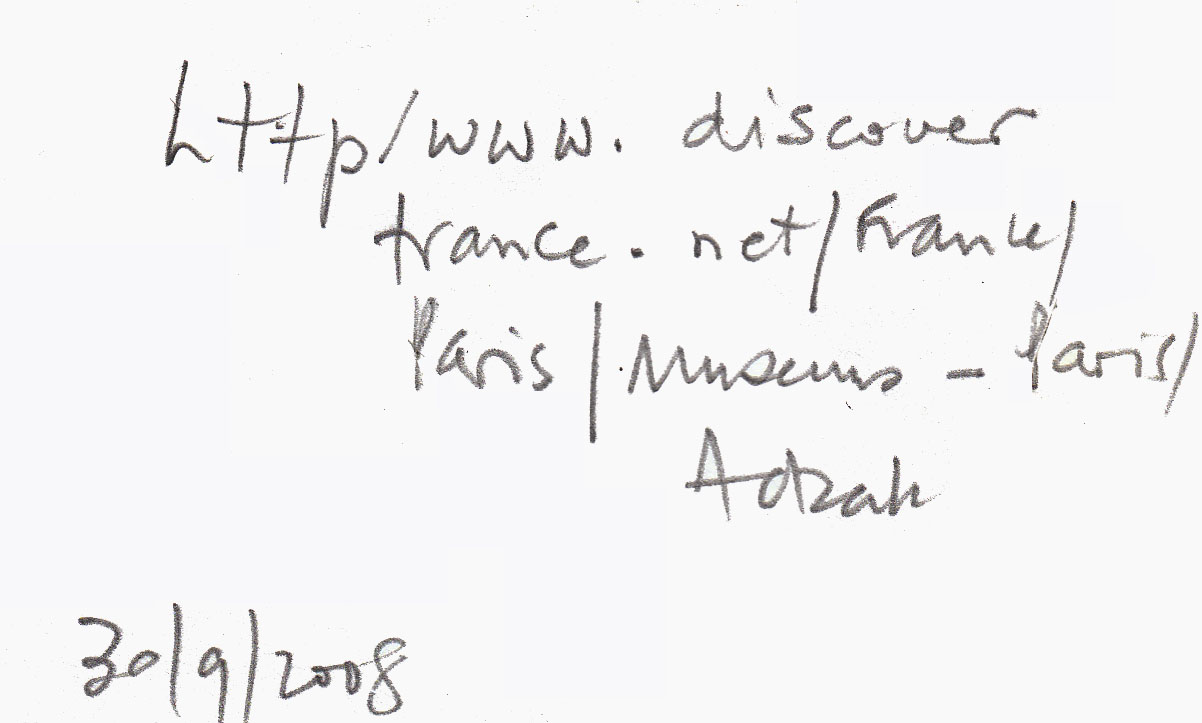 http/www. discover
france. net/France/
Paris/Museums - Paris/
Adzak
30/9/2008